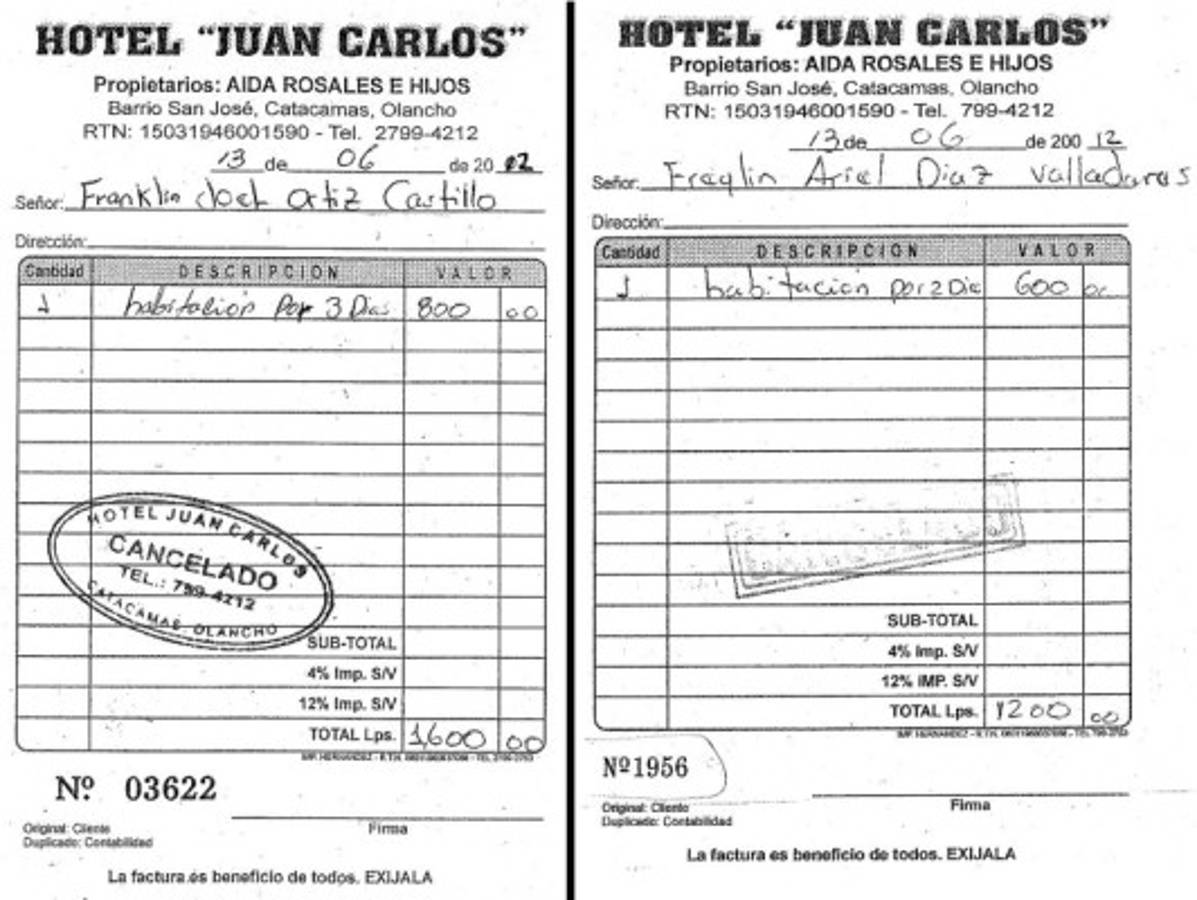 HOTEL "JUAN CARLOS"
Propietarios: AIDA ROSALES E HIJOS
Barrio San José, Catacamas, Olancho
RTN: 15031946001590 - Tel. 2799-4212
13 de 06 de 20 12
Señor: Franklin Joel Ortiz Castillo
Dirección:
Cantidad DESCRIPCION VALOR
1 habitación por 3 Dias 800 00
HOTEL JUAN CARLOS
CANCELADO
TEL.: 799-4212
CATACAMAS, OLANCHO
SUB-TOTAL
4% Imp. S/V
12% Imp. S/V
TOTAL Lps. 1,600 00
Nº 03622
Original: Cliente
Duplicado: Contabilidad
Firma
La factura es beneficio de todos. EXIJALA
HOTEL "JUAN CARLOS"
Propietarios: AIDA ROSALES E HIJOS
Barrio San José, Catacamas, Olancho
RTN: 15031946001590 - Tel. 799-4212
13 de 06 de 200 12
Señor: Ariel Diaz Valladares
Dirección:
Cantidad DESCRIPCION VALOR
1 habitación por 2 Dia 600 00
SUB-TOTAL
4% Imp. S/V
12% IMP. S/V
TOTAL Lps. 1200 00
Nº 1956
Original: Cliente
Duplicado: Contabilidad
Firma
La factura es beneficio de todos. EXIJALA